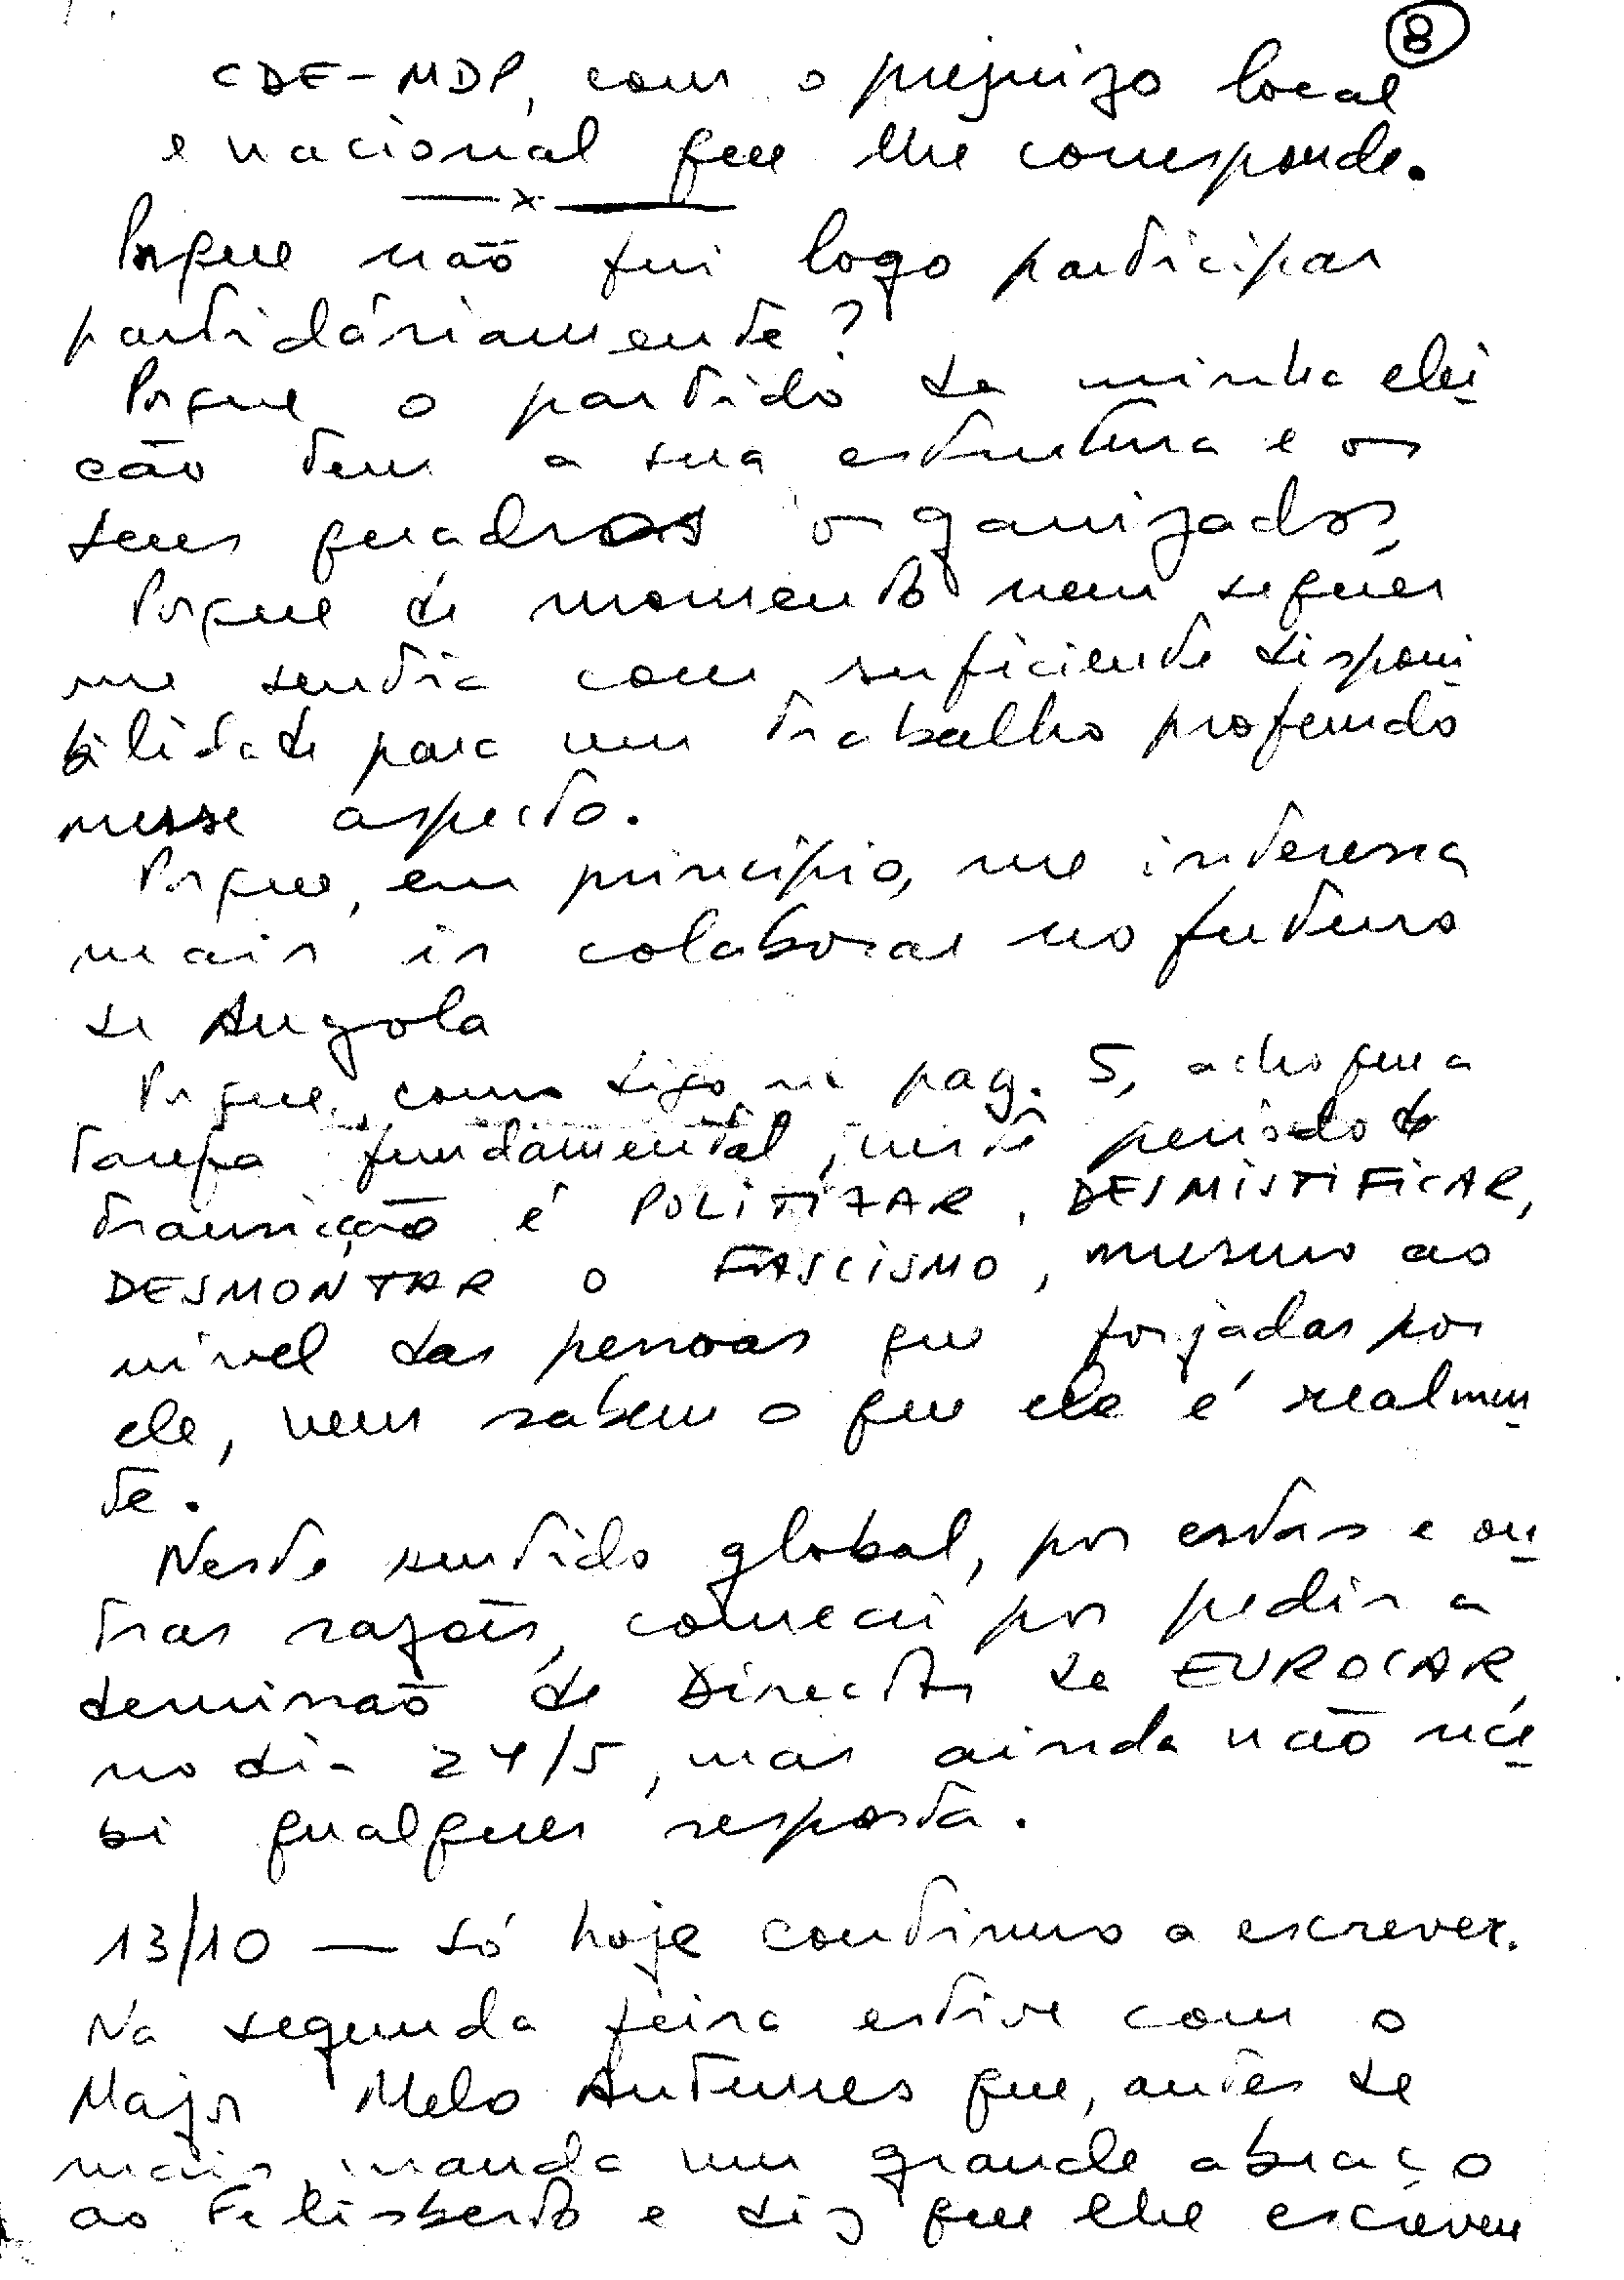 8
CDE-MDP, com o prejuizo local
e nacional que lhe corresponde.
—x—
Porque não fui logo participar
partidáriamente?
Porque o partido da minha elei
ção tem a sua estrutura e os
seus quadros organizados,
Porque de momento nem sequer
me sentia com suficiente disponi
bilidade para um trabalho profundo
nesse aspecto.
Porque, em princípio, me interessa
mais ir colaborar no futuro
de Angola
Porque, como digo na pag. 5, acho que a
tarefa fundamental, neste periodo de
transição é POLITIZAR, DESMISTIFICAR,
DESMONTAR O FASCISMO, mesmo ao
nivel das pessoas que forjadas por
ele, nem sabem o que ele é realmen
te.
Neste sentido global, por estas e ou
tras razões, comecei por pedir a
demissão de Director da EUROCAR,
no dia 24/5, mas ainda não rece
bi qualquer resposta.
13/10 — Só hoje continuo a escrever.
Na segunda feira estive com o
Major Melo Antunes que, antes de
mais, manda um grande abraço
ao Felisberto e diz que lhe escreveu